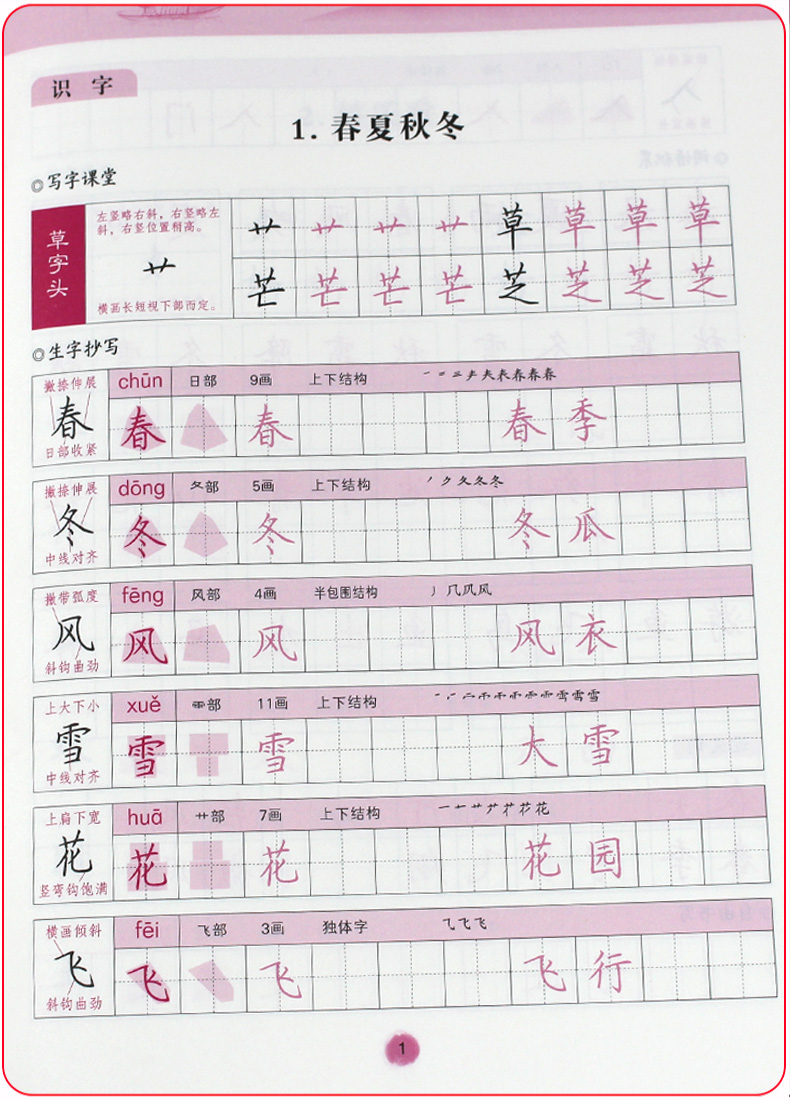 识 字
1. 春夏秋冬
◎写字课堂
草字头
左竖略右斜，右竖略左
斜，右竖位置稍高。
艹
横画长短视下部而定。
艹 艹 艹 艹 草 草 草 草
芒 芒 芒 芒 芝 芝 芝 芝
◎生字抄写
撇捺伸展
春
日部收紧
chūn 日部 9画 上下结构
春 春 春 季
撇捺伸展
冬
中线对齐
dōng 夂部 5画 上下结构
冬 冬 冬 瓜
撇带弧度
风
斜钩曲劲
fēng 风部 4画 半包围结构 丿几凡风
风 风 风 衣
上大下小
雪
中线对齐
xuě ⻗部 11画 上下结构
雪 雪 大 雪
上扁下宽
花
竖弯钩饱满
huā 艹部 7画 上下结构
花 花 花 园
横画倾斜
飞
斜钩曲劲
fēi 飞部 3画 独体字 ⺄飞飞
飞 飞 飞 行
1